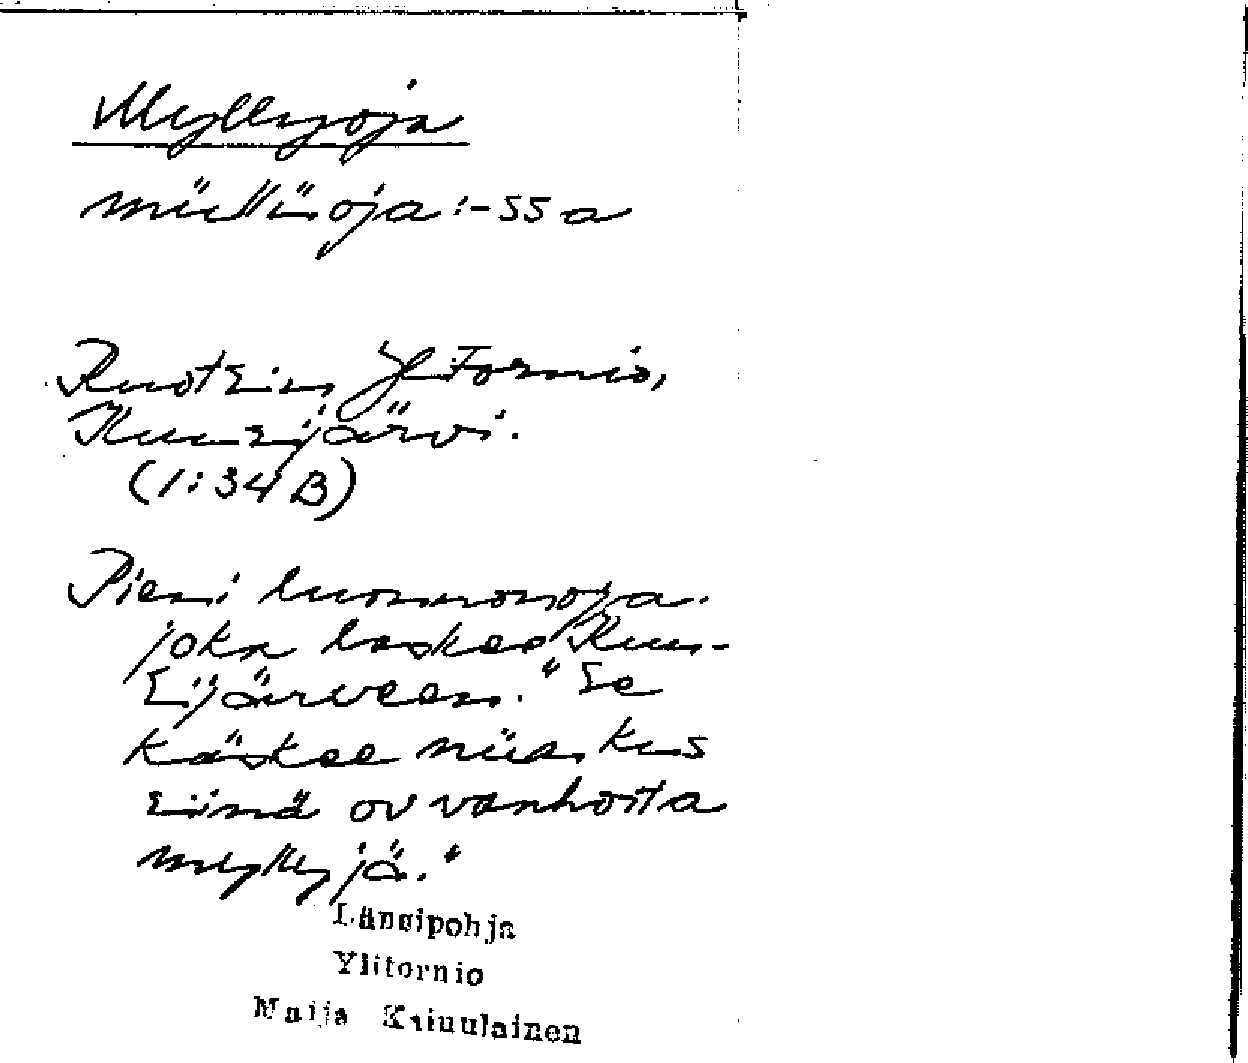 Myllyoja
müllüoja:-ssa
Ruotsin Ylitornio,
Kuusijärvi.
(1:34 B)
Pieni luonnonoja.
joka laskee Kuu-
sijärveen." Se
käskee niin, kus
siinä ov vanhoita
myllyjä."
Länsipohja
Ylitornio
Maija